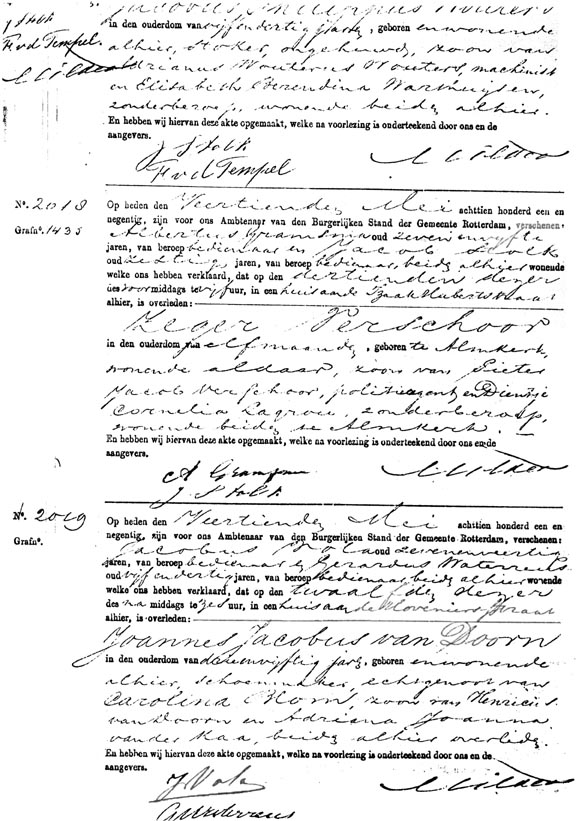 Jacobus Wouters
in den ouderdom van vijf en dertig jaren, geboren en wonende
alhier, stoker, ongehuwd, zoon van
Adrianus Wouterus Wouters, machinist
en Elisabeth Berendina Warthuysen,
zonder beroep, wonende beiden alhier.
En hebben wij hiervan deze akte opgemaakt, welke na voorlezing is onderteekend door ons en de
aangevers.
J Stolk
F v d Tempel
J Stolk
F v d Tempel
No. 2018
Grafno. 1435
Op heden den Veertienden Mei achttien honderd een en
negentig, zijn voor ons Ambtenaar van den Burgerlijken Stand der Gemeente Rotterdam, verschenen:
Albertus Gramsma oud zeven en vijftig
jaren, van beroep bedienaar en Jacob Stolk
oud zestig jaren, van beroep bedienaar, beiden alhier wonende
welke ons hebben verklaard, dat op den dertienden dezer
des voormiddags te vijf uur, in een huis aan de Izaak Hubertstraat
alhier, is overleden:
Zeger Verschoor
in den ouderdom van elf maanden, geboren te Almkerk,
wonende aldaar, zoon van Pieter
Jacob Verschoor, politieagent, en Dientje
Cornelia Lagrou, zonder beroep,
wonende beiden te Almkerk.
En hebben wij hiervan deze akte opgemaakt, welke na voorlezing is onderteekend door ons en de
aangevers.
A Gramsma
J. Stolk
No. 2019
Grafno.
Op heden den Veertienden Mei achttien honderd een en
negentig, zijn voor ons Ambtenaar van den Burgerlijken Stand der Gemeente Rotterdam, verschenen:
Jacobus oud zeven en veertig
jaren, van beroep bedienaar & Gerardus Waterreus
oud vijf en dertig jaren, van beroep bedienaar, beiden alhier wonende
welke ons hebben verklaard, dat op den twaalfden dezer
des na middags te zes uur, in een huis aan de Kloveniersstraat
alhier, is overleden:
Joannes Jacobus van Doorn
in den ouderdom van drie en vijftig jaren, geboren en wonende
alhier, schoenmaker, echtgenoot van
Carolina Thom, zoon van Henricus
van Doorn en Adriana Joanna
van der Kaa, beiden alhier overleden.
En hebben wij hiervan deze akte opgemaakt, welke na voorlezing is onderteekend door ons en de
aangevers.
G Waterreus